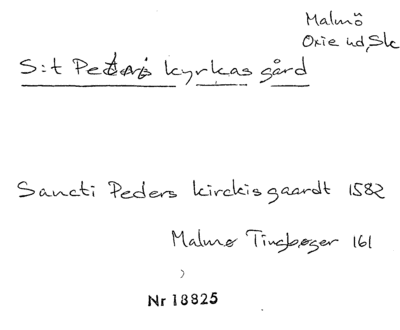 Malmö
Oxie hd, Sk
S:t Petri kyrkas gård
Sancti Peders kirckis gaardt 1582
Malmø Tingbøger 161
Nr 18825